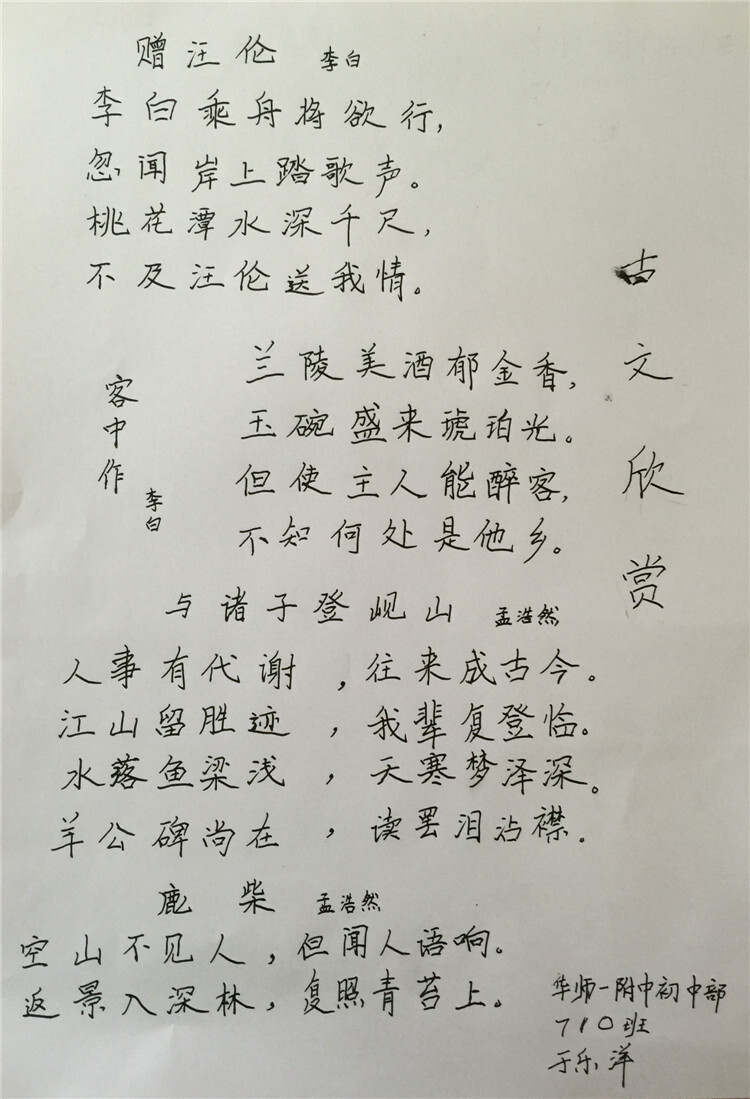 赠汪伦 李白
李白乘舟将欲行，
忽闻岸上踏歌声。
桃花潭水深千尺，
不及汪伦送我情。
古文欣赏
客中作
李白
兰陵美酒郁金香，
玉碗盛来琥珀光。
但使主人能醉客，
不知何处是他乡。
与诸子登岘山 孟浩然
人事有代谢，往来成古今。
江山留胜迹，我辈复登临。
水落鱼梁浅，天寒梦泽深。
羊公碑尚在，读罢泪沾襟。
鹿柴 孟浩然
空山不见人，但闻人语响。
返景入深林，复照青苔上。
华师一附中初中部
710班
于乐洋